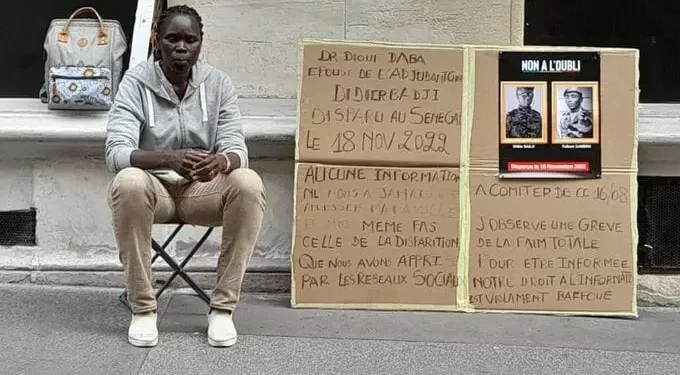 DR DIOUI DABA
EPOUSE DE L'ADJUDANT CHEF
DIDIER BADJI
DISPARU AU SENEGAL
LE 18 NOV 2022
AUCUNE INFORMATION
NE NOUS A JAMAIS ETE
MEME PAS
CELLE DE LA DISPARITION
QUE NOUS AVONS APPRIS
PAR LES RESEAUX SOCIAUX
NON A L'OUBLI
Didier BADJI
Fulbert SAMBOU
Disparus le 18 Novembre 2022
A COMPTER DE CE 16/08
J'OBSERVE UNE GREVE
DE LA FAIM TOTALE
POUR ETRE INFORMEE
NOTRE DROIT A L'INFORMATIO
EST VIOLAMENT BAFFOUE